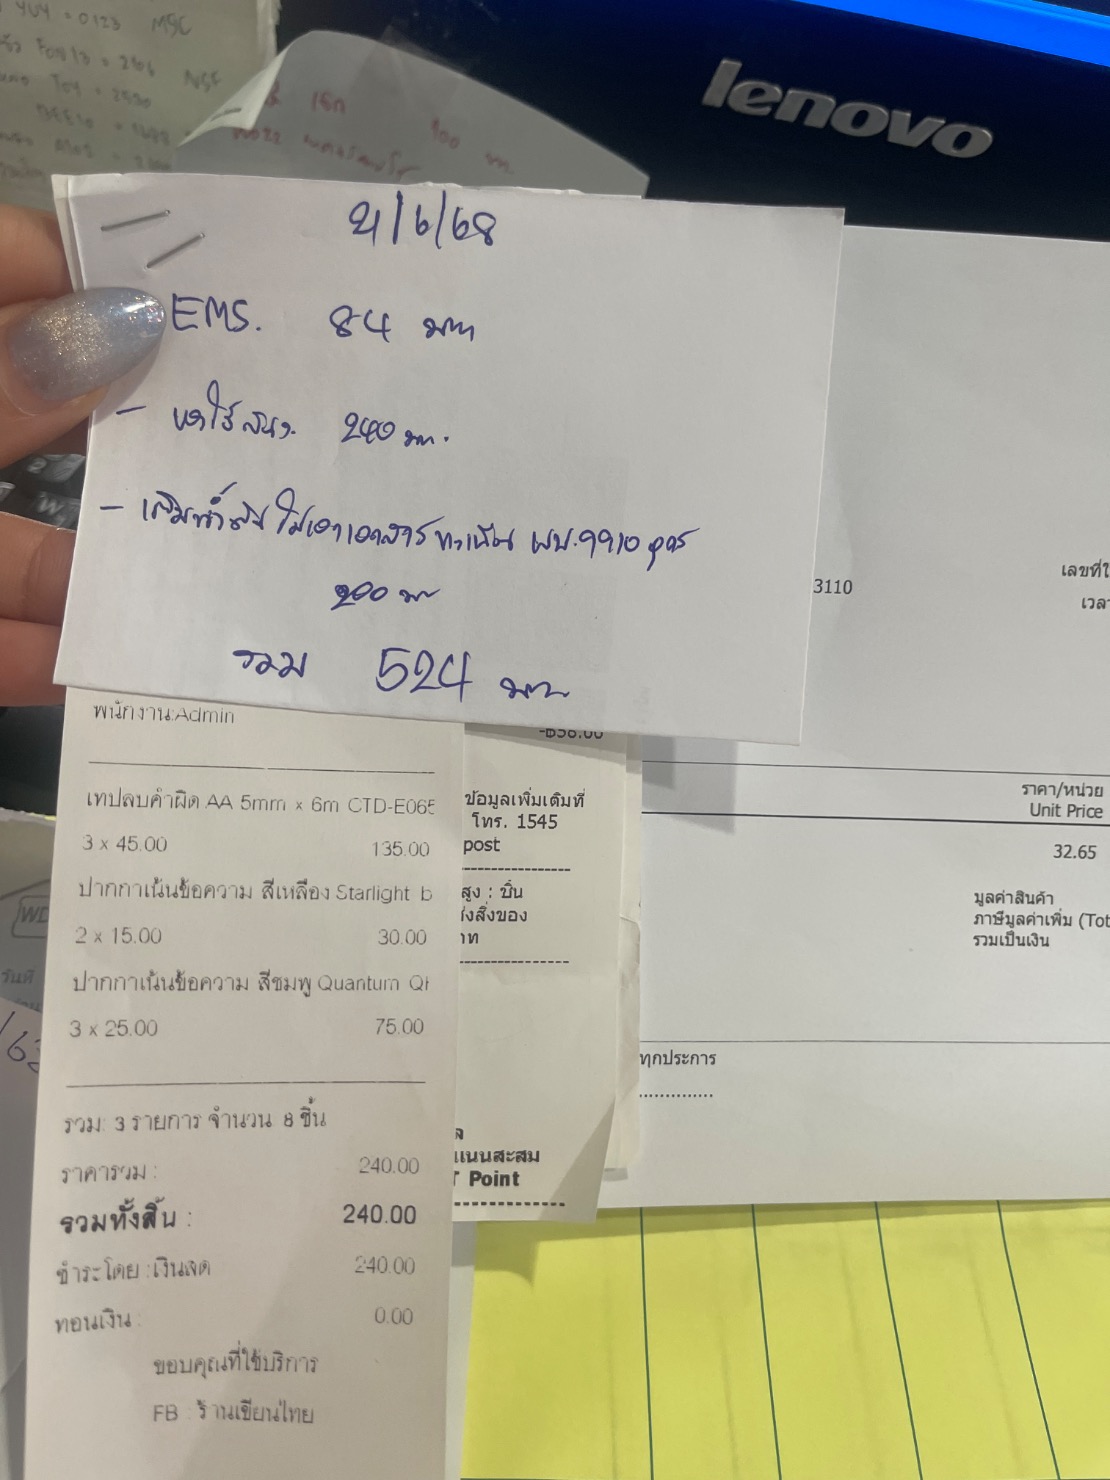 lenovo
21/6/68
EMS. 84 บาท
- ของใช้สนง. 240 บาท.
- เติมน้ำมัน ไปเอาเอกสาร ทะเบียน
200 บาท
รวม 524 บาท
3110
เลขที่ใ
เวลา
พนักงาน:Admin
-฿58.00
เทปลบคำผิด AA 5mm x 6m CTD-E065
3 x 45.00 135.00
ปากกาเน้นข้อความ สีเหลือง Starlight b
2 x 15.00 30.00
ปากกาเน้นข้อความ สีชมพู Quantum QH
3 x 25.00 75.00
รวม: 3 รายการ จำนวน 8 ชิ้น
ราคารวม : 240.00
รวมทั้งสิ้น : 240.00
ชำระโดย :เงินสด 240.00
ทอนเงิน : 0.00
ขอบคุณที่ใช้บริการ
FB : ร้านเขียนไทย
ข้อมูลเพิ่มเติมที่
โทร. 1545
post
สูง : ชิ้น
ส่งสิ่งของ
าท
ล
แนนสะสม
T Point
ราคา/หน่วย
Unit Price
32.65
มูลค่าสินค้า
ภาษีมูลค่าเพิ่ม (Tot
รวมเป็นเงิน
ทุกประการ